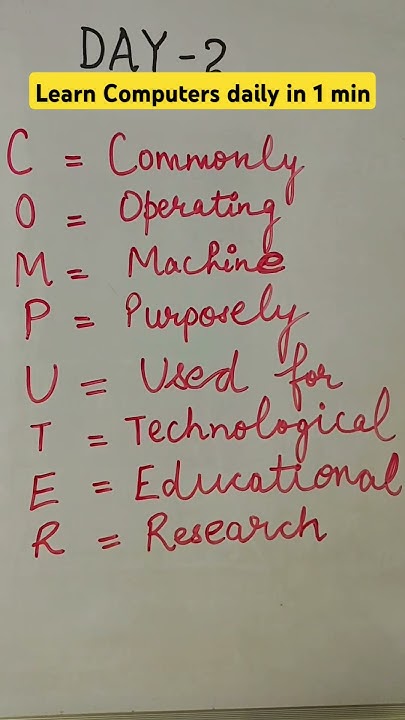 DAY-2
Learn Computers daily in 1 min
C = Commonly
O = Operating
M = Machine
P = Purposely
U = Used for
T = Technological
E = Educational
R = Research